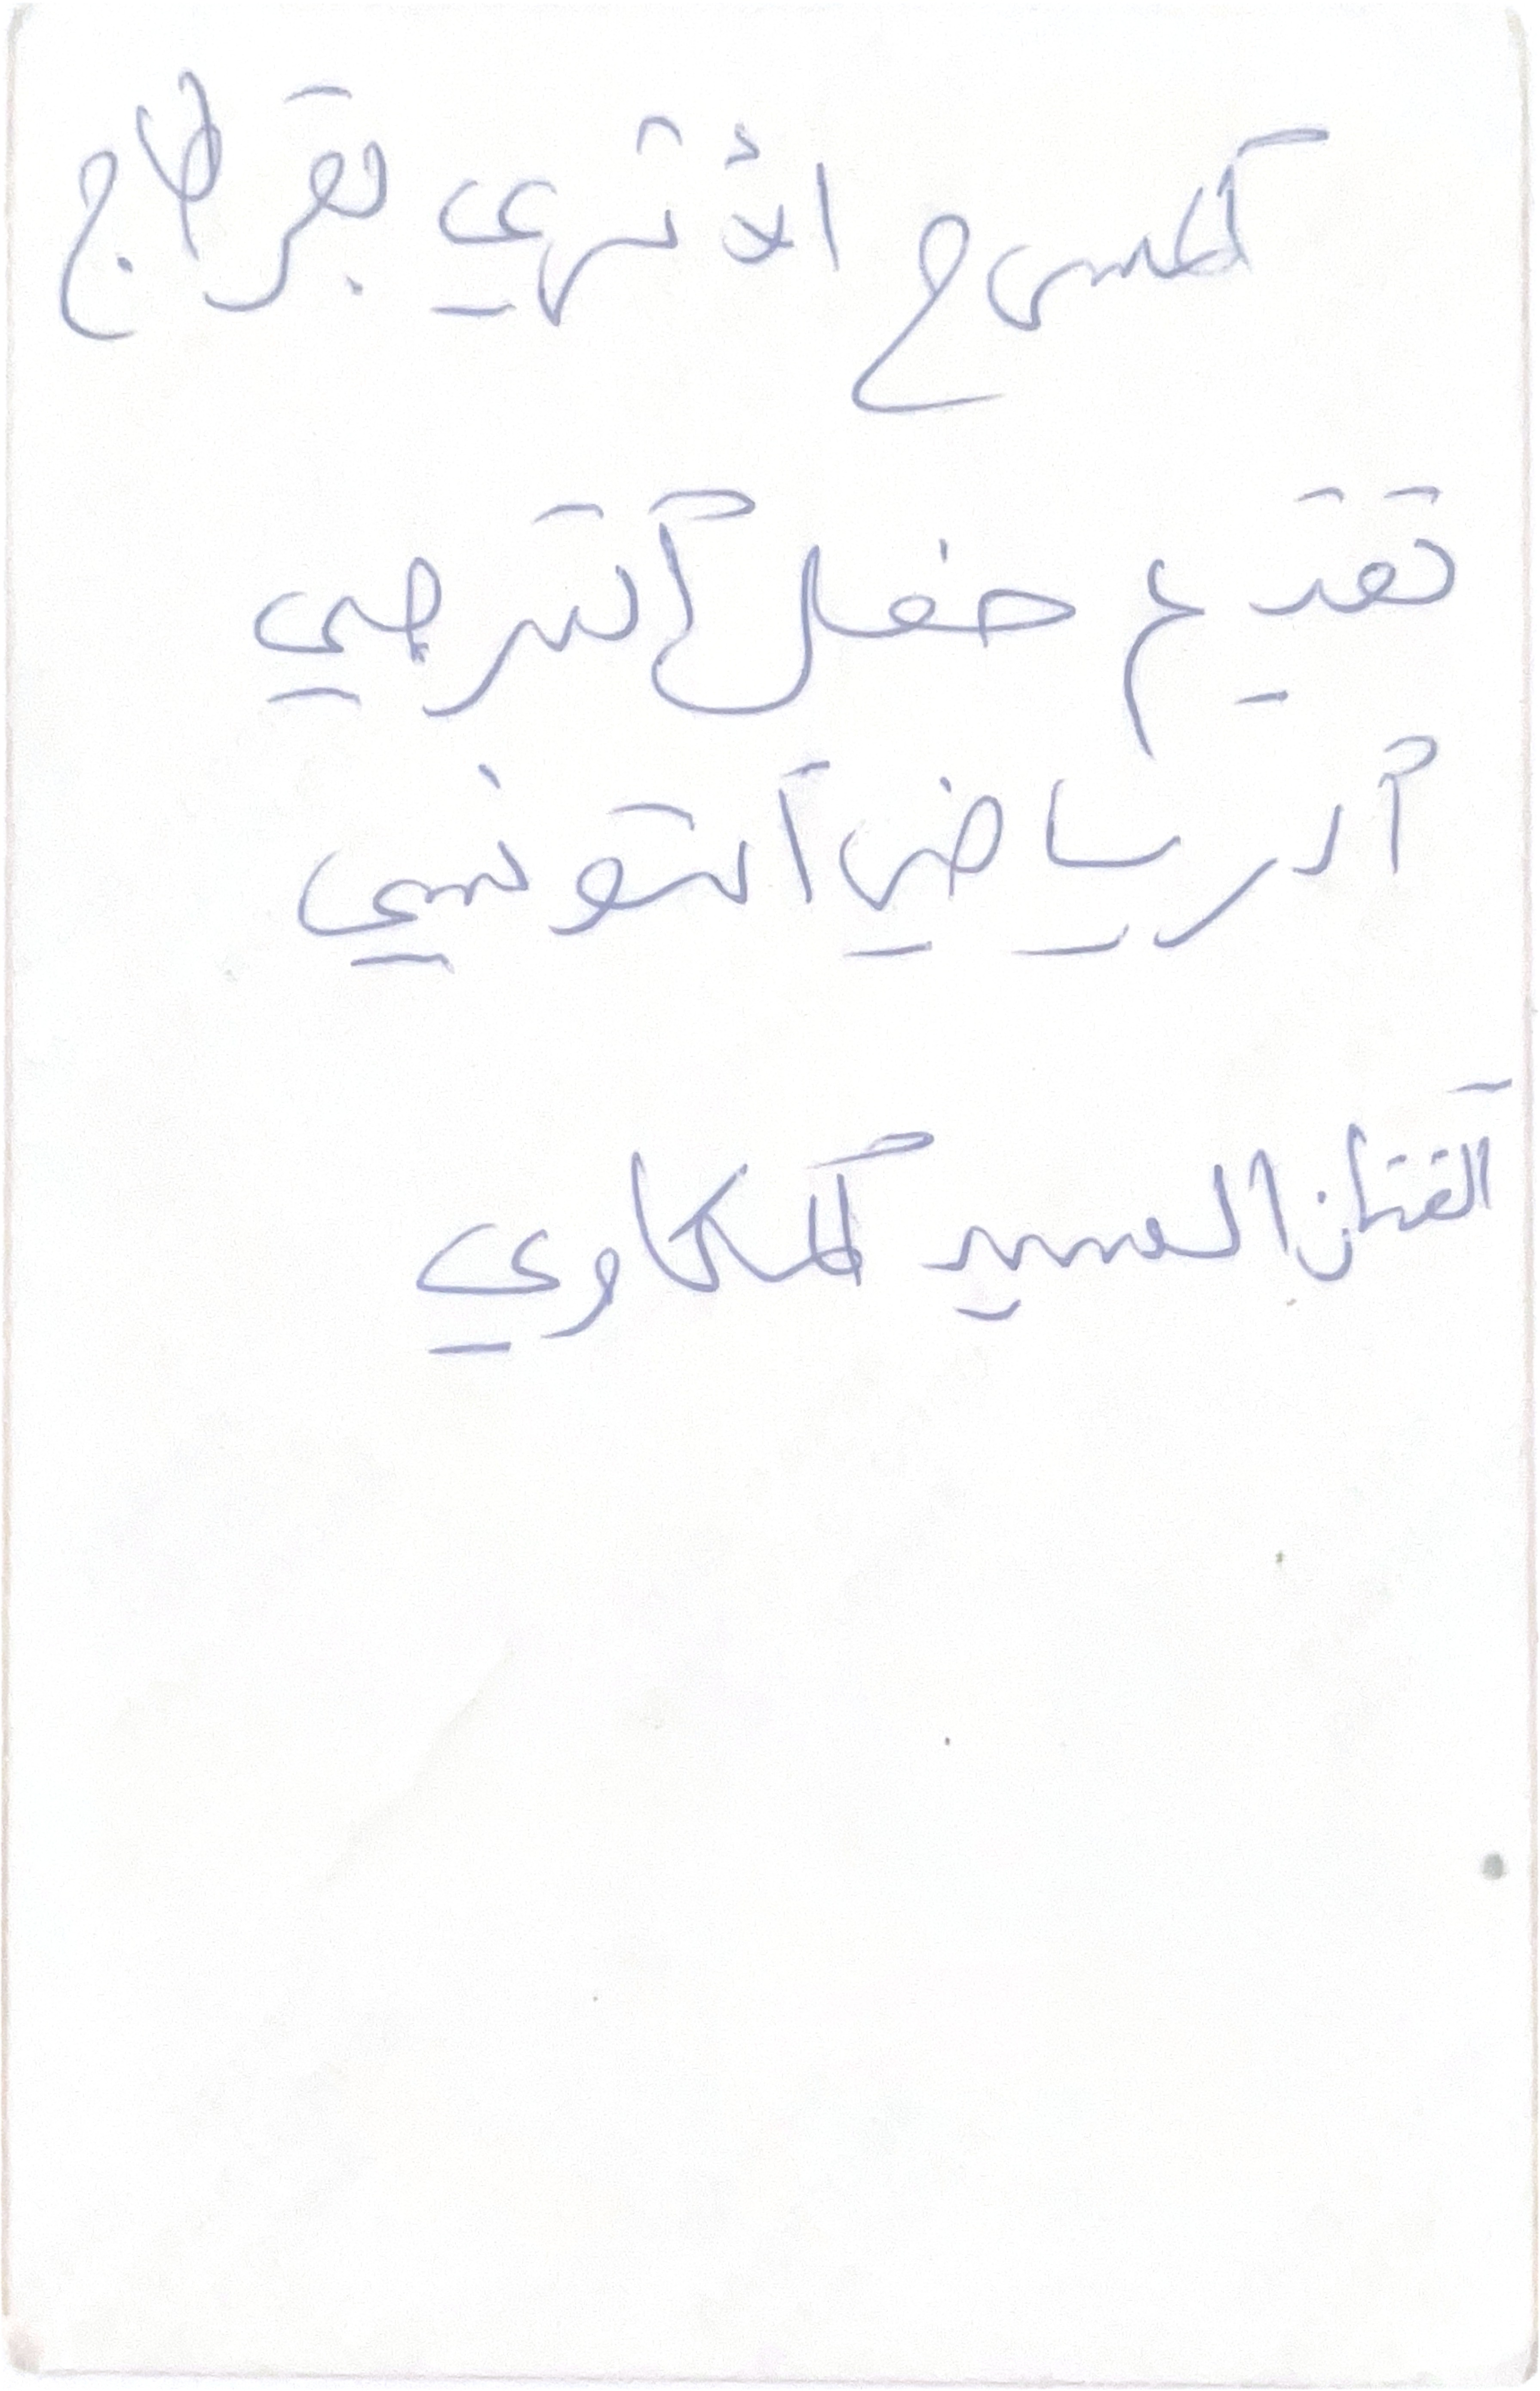 المسرح الأثري بقرطاج
تقديم حفل الترجي
الرياضي التونسي
الفنان السيد المكاوي